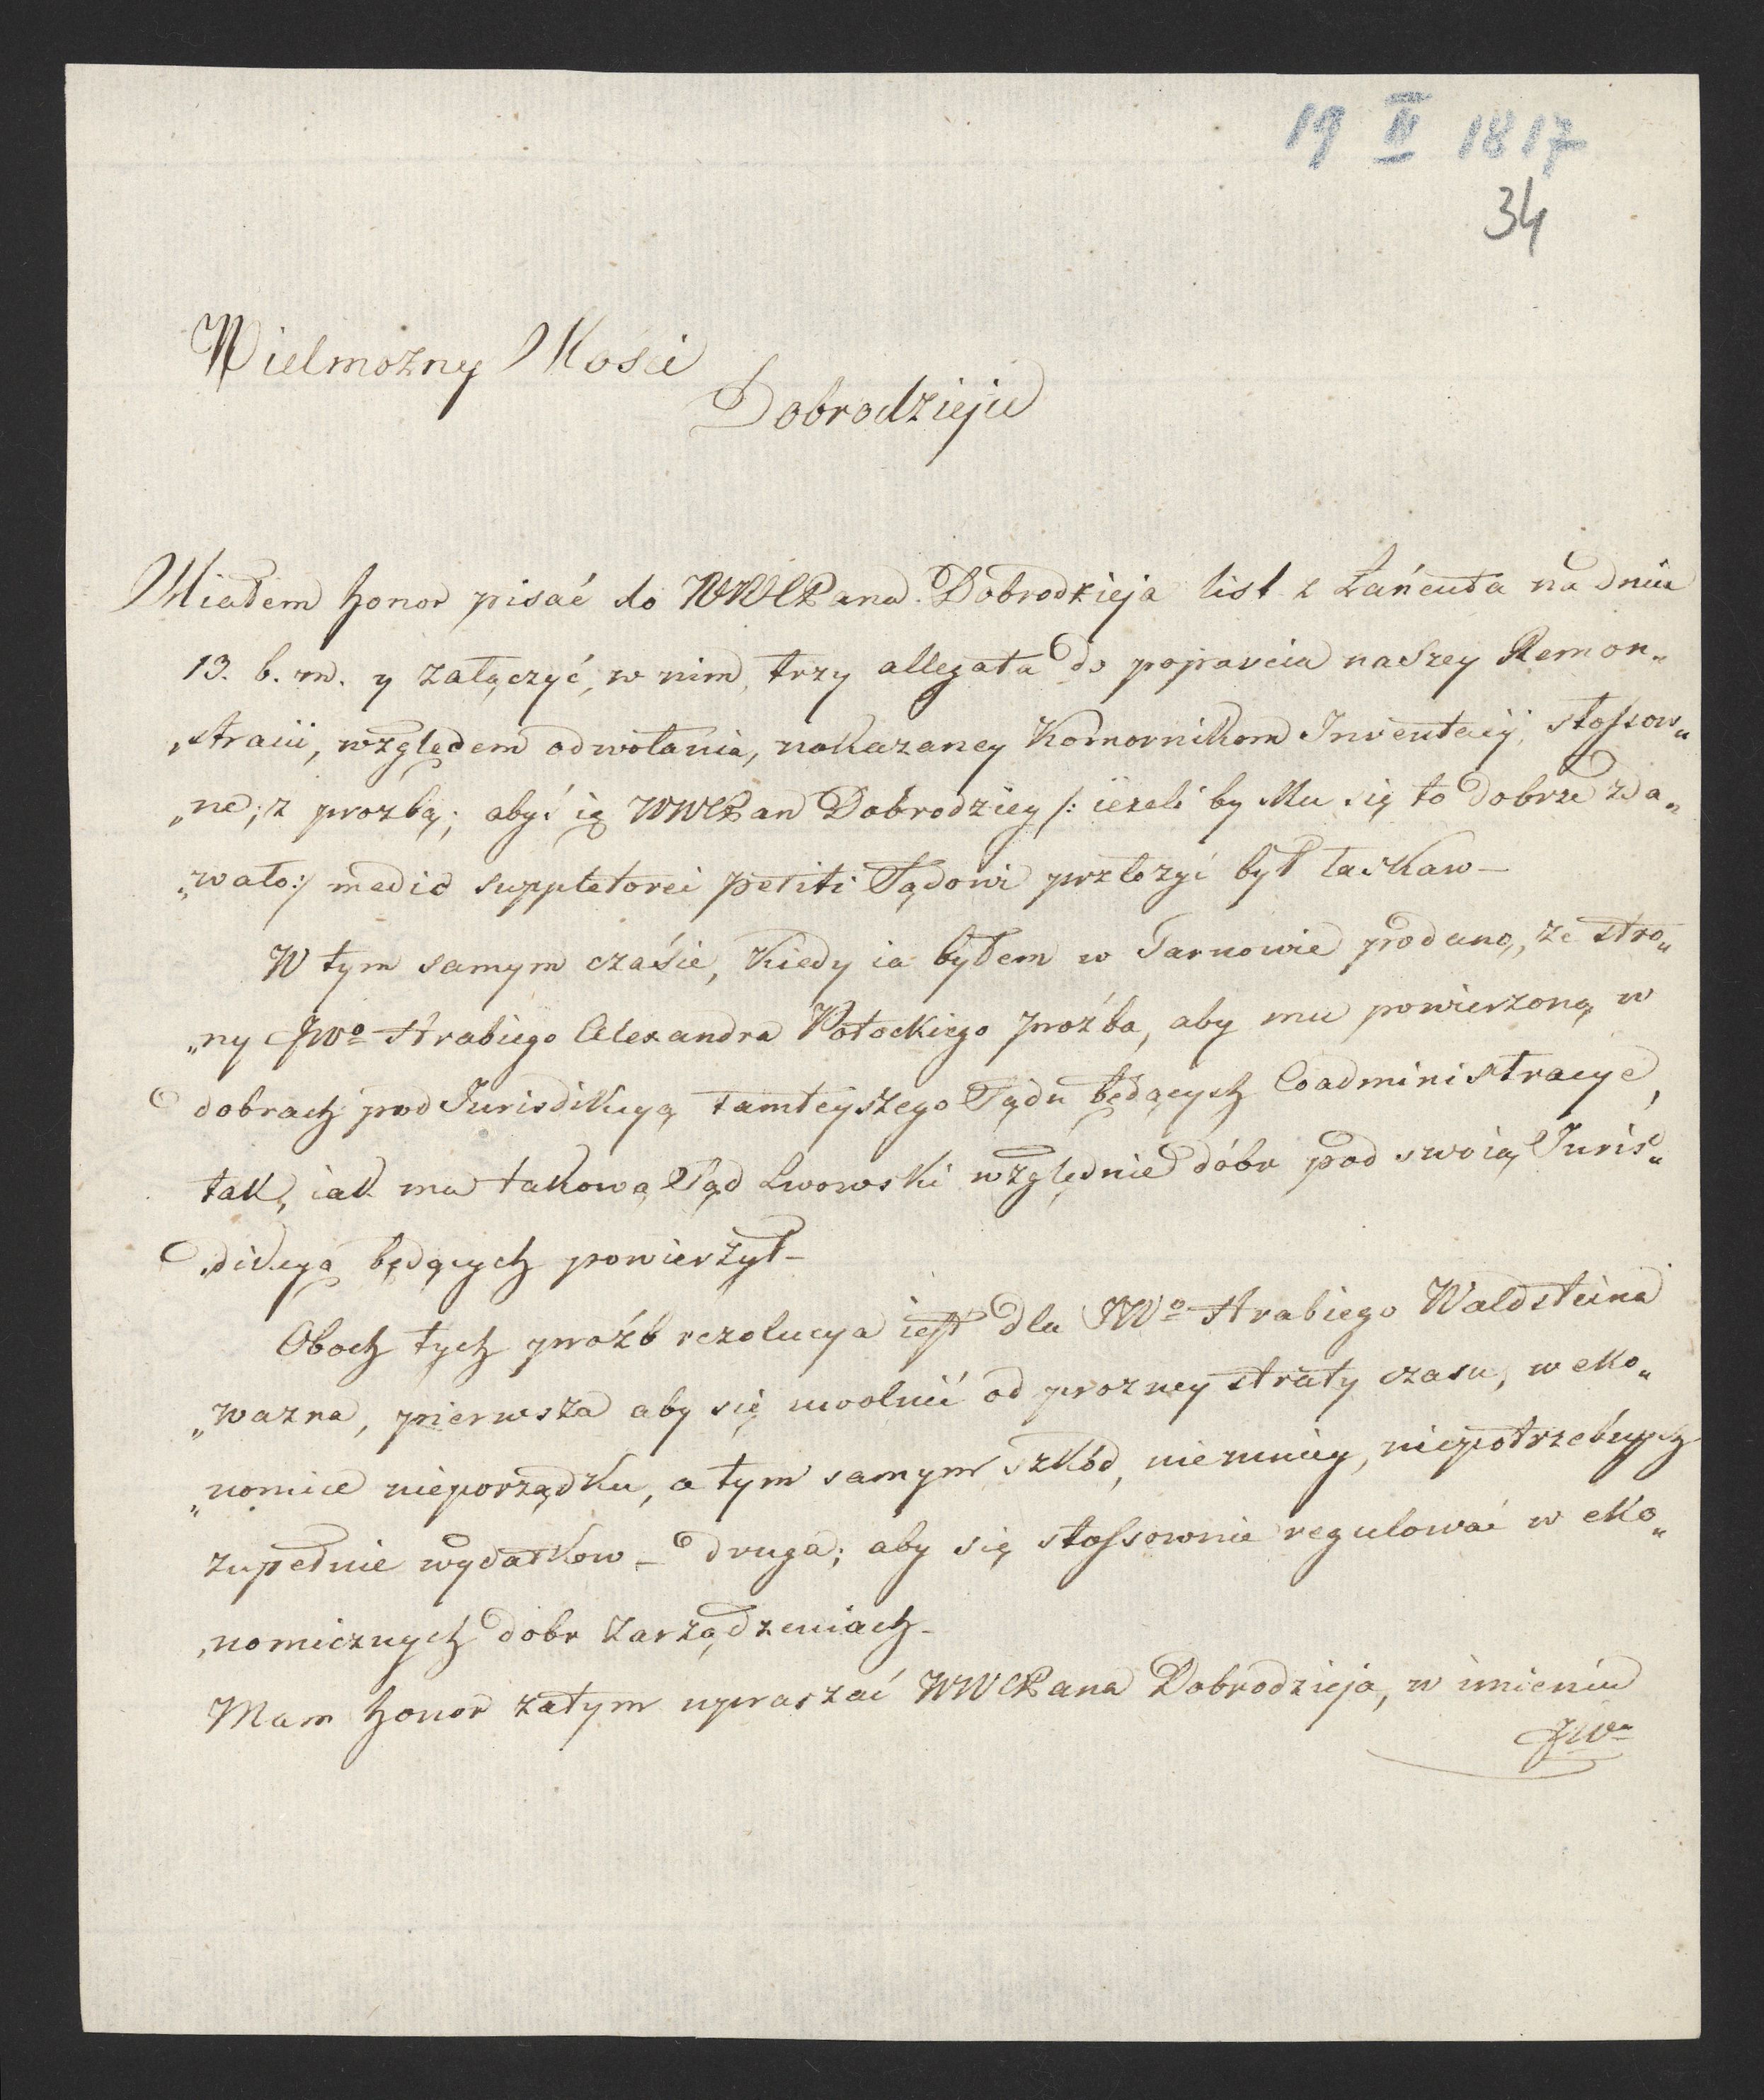 19 II 1817
34
Wielmożny Mości
Dobrodzieju
Miałem honor pisać do WWCPana Dobrodzieja list z Łańcuta na dniu
13. b. m. y załączyć, w nim, trzy allegata do poparcia naszey Remon„
„stracii, względem odwołania, nakazaney Komornikom Inwentacij, stossow„
„ne; z prozbą; abyś ią WWCPan Dobrodziey /: ieżeli by Mu się to dobrze zda„
„wało:/ medio suppletorei petiti Sądowi przełozyć był łaskaw—
W tym samym czasie, kiedy ia byłem w Tarnowie podano, ze stro„
„ny JWo Hrabiego Alexandra Potockiego proźba, aby mu powierzoną w
dobrach pod Jurisdikcyą tamteyszego Sądu będących Coadministracye,
tak, iak mu takową Sąd Lwowski względnie dóbr pod swoią Juris„
„dikcyą będących powierzył—
Oboch tych proźb rezolucya iest dla JWo Hrabiego Waldsteina
„wazna, pierwsza aby się uwolnić od prozney straty czasu, w eko„
„nomice nieporządku, a tym samym szkód, niemniey, niepotrzebnych
zupełnie wydatkow — druga; aby się stossownie regulować w eko„
„nomicznych dobr zarządzeniach—
Mam honor zatym upraszać WWCPana Dobrodzieja, w imieniu
JWo